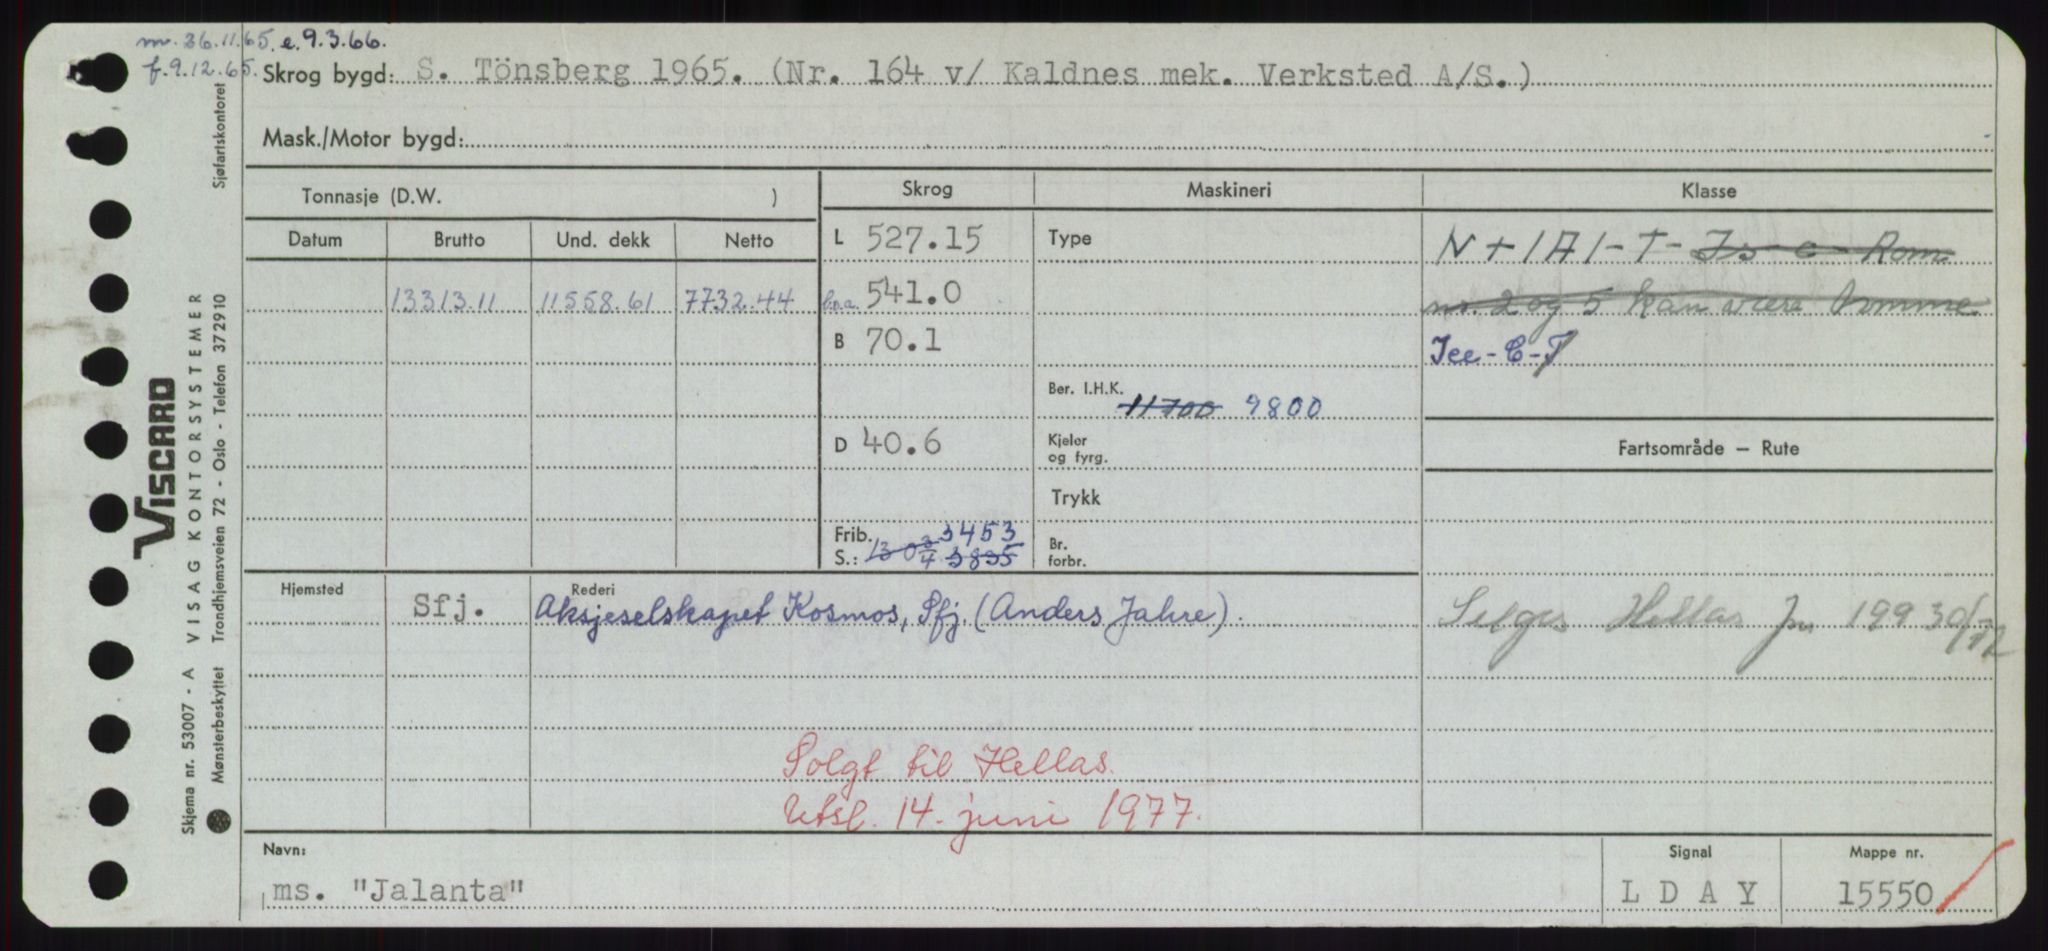 m. 26.11.65. e. 9.3.66.
f. 9.12.65.
Skrog bygd: S. Tönsberg 1965. (Nr. 164 v/ Kaldnes mek. Verksted A/S.)
Mask./Motor bygd:
Tonnasje (D.W. )
Skrog
Maskineri
Klasse
Datum
Brutto
Und. dekk
Netto
L 527.15
Type
N + 1A1 - T - Is c Rom
13313.11
11558.61
7732.44
l.o.a. 541.0
nr. 2 og 5 kan være tomme
B 70.1
Ice - C - T
Ber. I.H.K.
11700 9800
D 40.6
Kjeler
og fyrg.
Fartsområde — Rute
Trykk
Frib. 3453
S.: 13 0 3/4 3835
Br.
forbr.
Hjemsted
Sfj.
Rederi
Aksjeselskapet Kosmos, Sfj. (Anders Jahre).
Selges Hellas Jn 199 30/
Solgt til Hellas.
Utsl. 14. juni 1977.
Navn:
ms. "Jalanta"
Signal
L D A Y
Mappe nr.
15550
VISCARD
Skjema nr. 53007 - A VISAG KONTORSYSTEMER
Mønsterbeskyttet Trondhjemsveien 72 - Oslo - Telefon 372910
Sjøfartskontoret